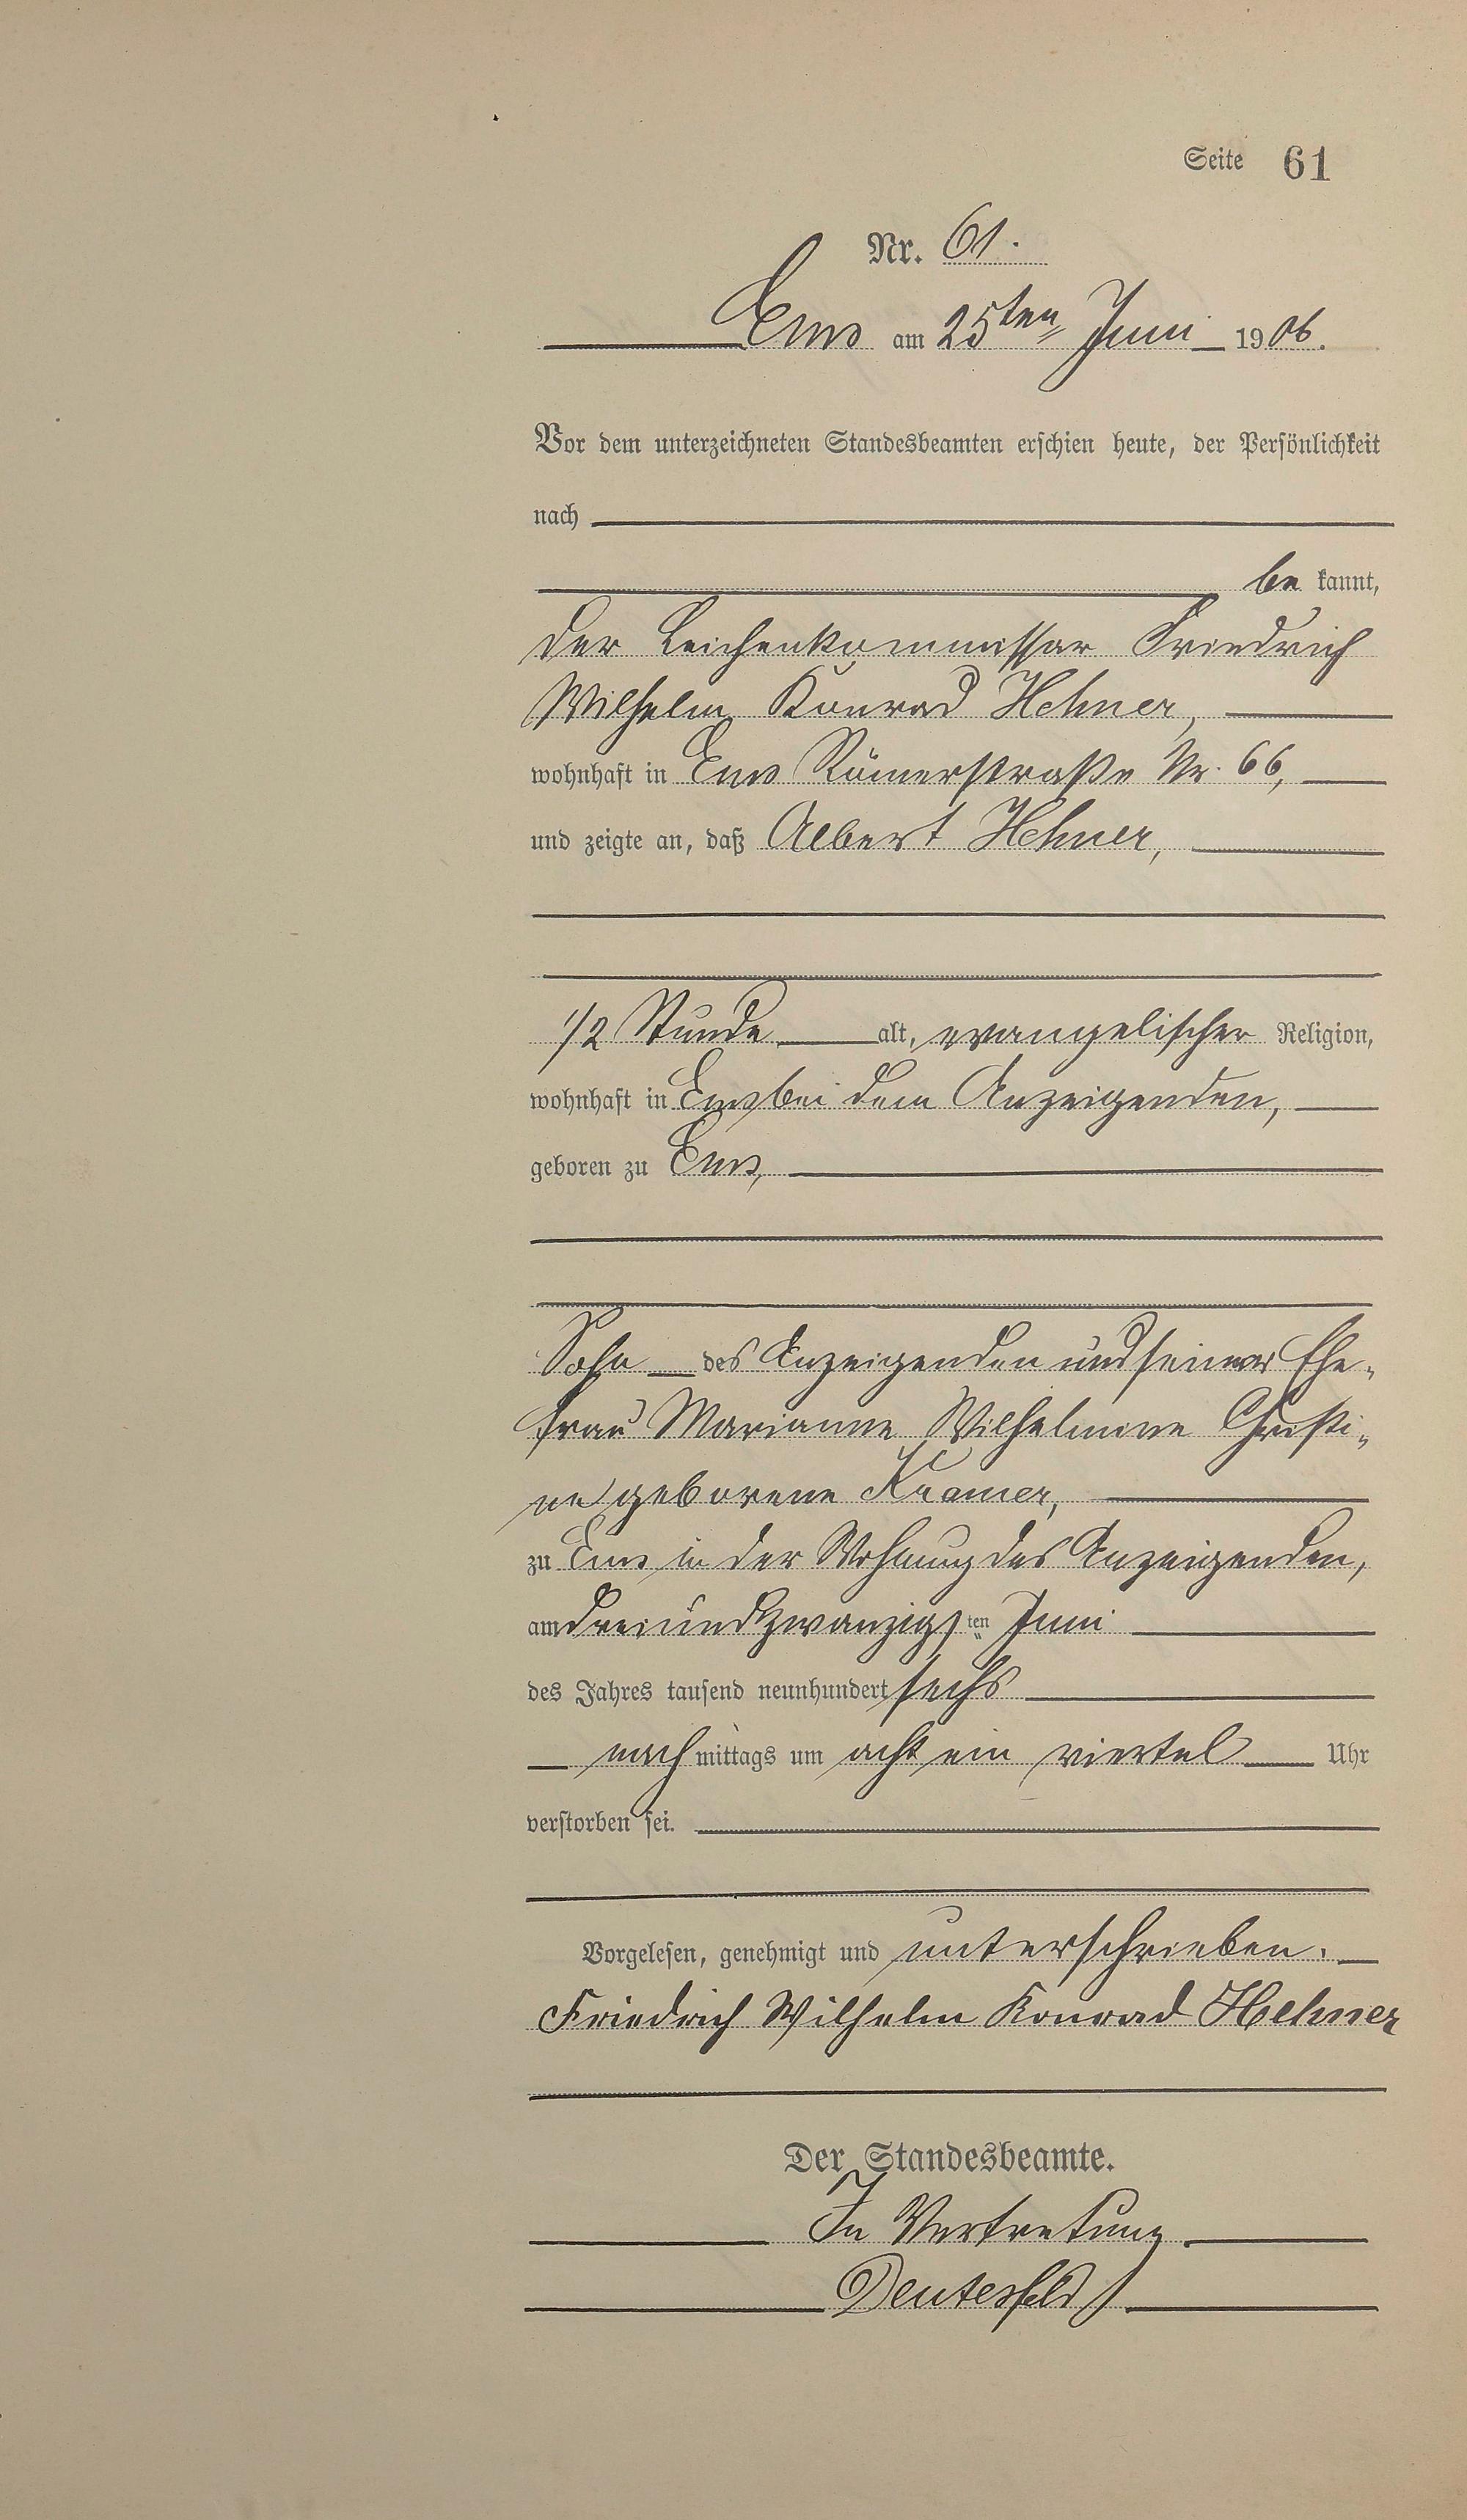 Seite 61
Nr. 61.
Ems am 25ten Juni 1906.
Vor dem unterzeichneten Standesbeamten erschien heute, der Persönlichkeit
nach
be kannt,
der Leichenkommissar Friedrich
Wilhelm Konrad Hehner,
wohnhaft in Ems Römerstraße Nr. 66,
und zeigte an, daß Albert Hehner,
1/2 Stunde alt, evangelischer Religion,
wohnhaft in Ems bei dem Anzeigenden,
geboren zu Ems,
Sohn des Anzeigenden und seiner Ehe-
frau Marianne Wilhelmine Christi-
ne geborene Kramer,
zu Ems in der Wohnung des Anzeigenden,
am dreiundzwanzigsten Juni
des Jahres tausend neunhundert sechs
nach mittags um acht ein viertel Uhr
verstorben sei.
Vorgelesen, genehmigt und unterschrieben.
Friedrich Wilhelm Konrad Hehner
Der Standesbeamte.
In Vertretung
Deutesfeld